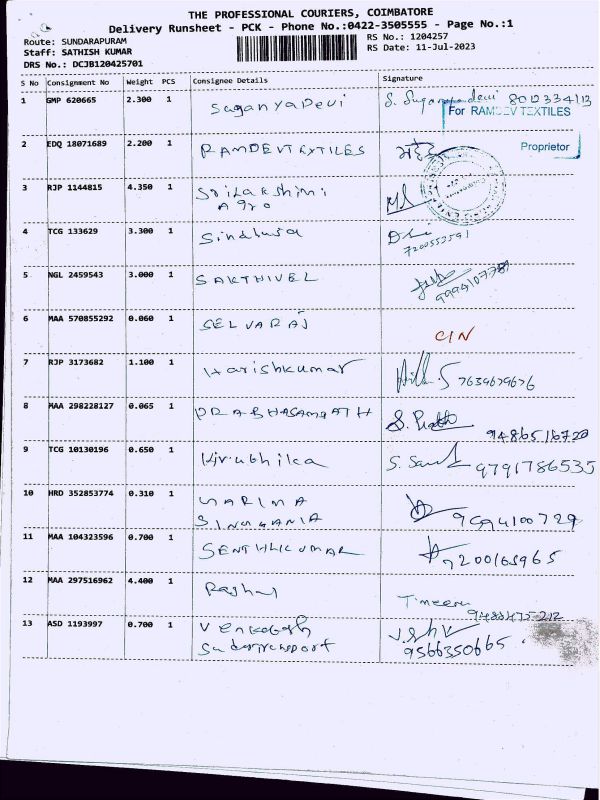 THE PROFESSIONAL COURIERS, COIMBATORE
Delivery Runsheet - PCK - Phone No.:0422-3505555 - Page No.:1
Route: SUNDARAPURAM
RS No.: 1204257
Staff: SATHISH KUMAR
RS Date: 11-Jul-2023
DRS No.: DCJB120425701
S No Consignment No Weight PCS Consignee Details Signature
1 GMP 620665 2.300 1 SuganyaDevi
For RAMDEV TEXTILES
2 EDQ 18071689 2.200 1 RAMDEVTEXTILES
Proprietor
3 RJP 1144815 4.350 1 SriLakshmi
Agro
4 TCG 133629 3.300 1 Sindhura
7200553591
5 NGL 2459543 3.000 1 SAKTHIVEL
6 MAA 570855292 0.060 1 SELVARAJ CIN
7 RJP 3173682 1.100 1 Harishkumar 7639679676
8 MAA 298228127 0.065 1 PRABHASAMPATH
9486516720
9 TCG 10130196 0.650 1 Kirubhika 9791786535
10 HRD 352853774 0.310 1
SINGHANIA
11 MAA 104323596 0.700 1 SENTHILKUMAR 7200165965
12 MAA 297516962 4.400 1
13 ASD 1193997 0.700 1 Venkatesh
9566350665